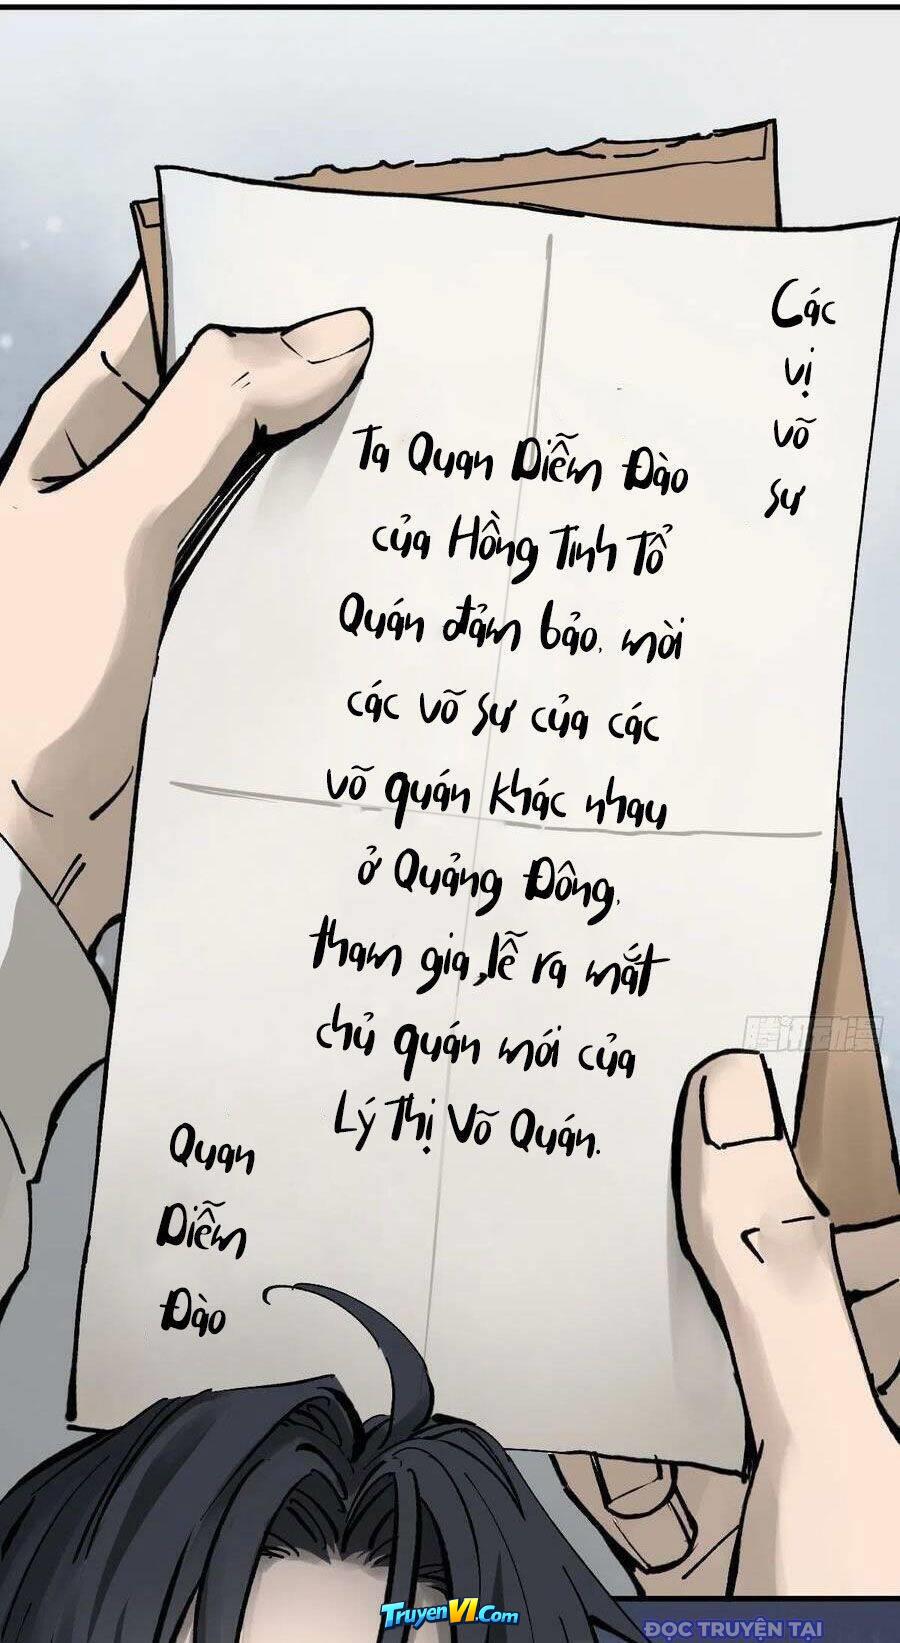 Các
vị
võ
sư
Ta Quan Diễm Đào
của Hồng Tinh Tổ
Quán đảm bảo, mời
các võ sư của các
võ quán khác nhau
ở Quảng Đông,
tham gia lễ ra mắt
chủ quán mới của
Lý Thị Võ Quán.
Quan
Diễm
Đào
腾讯动漫
TruyenVI.Com
ĐỌC TRUYỆN TẠI